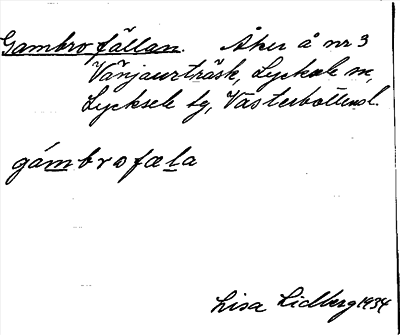 Gambrofällan. Åker å nr 3
Vänjaurträsk, Lycksele sn,
Lycksele sg, Västerbottens l.
gámbrofæla
Lisa Lidberg 1934